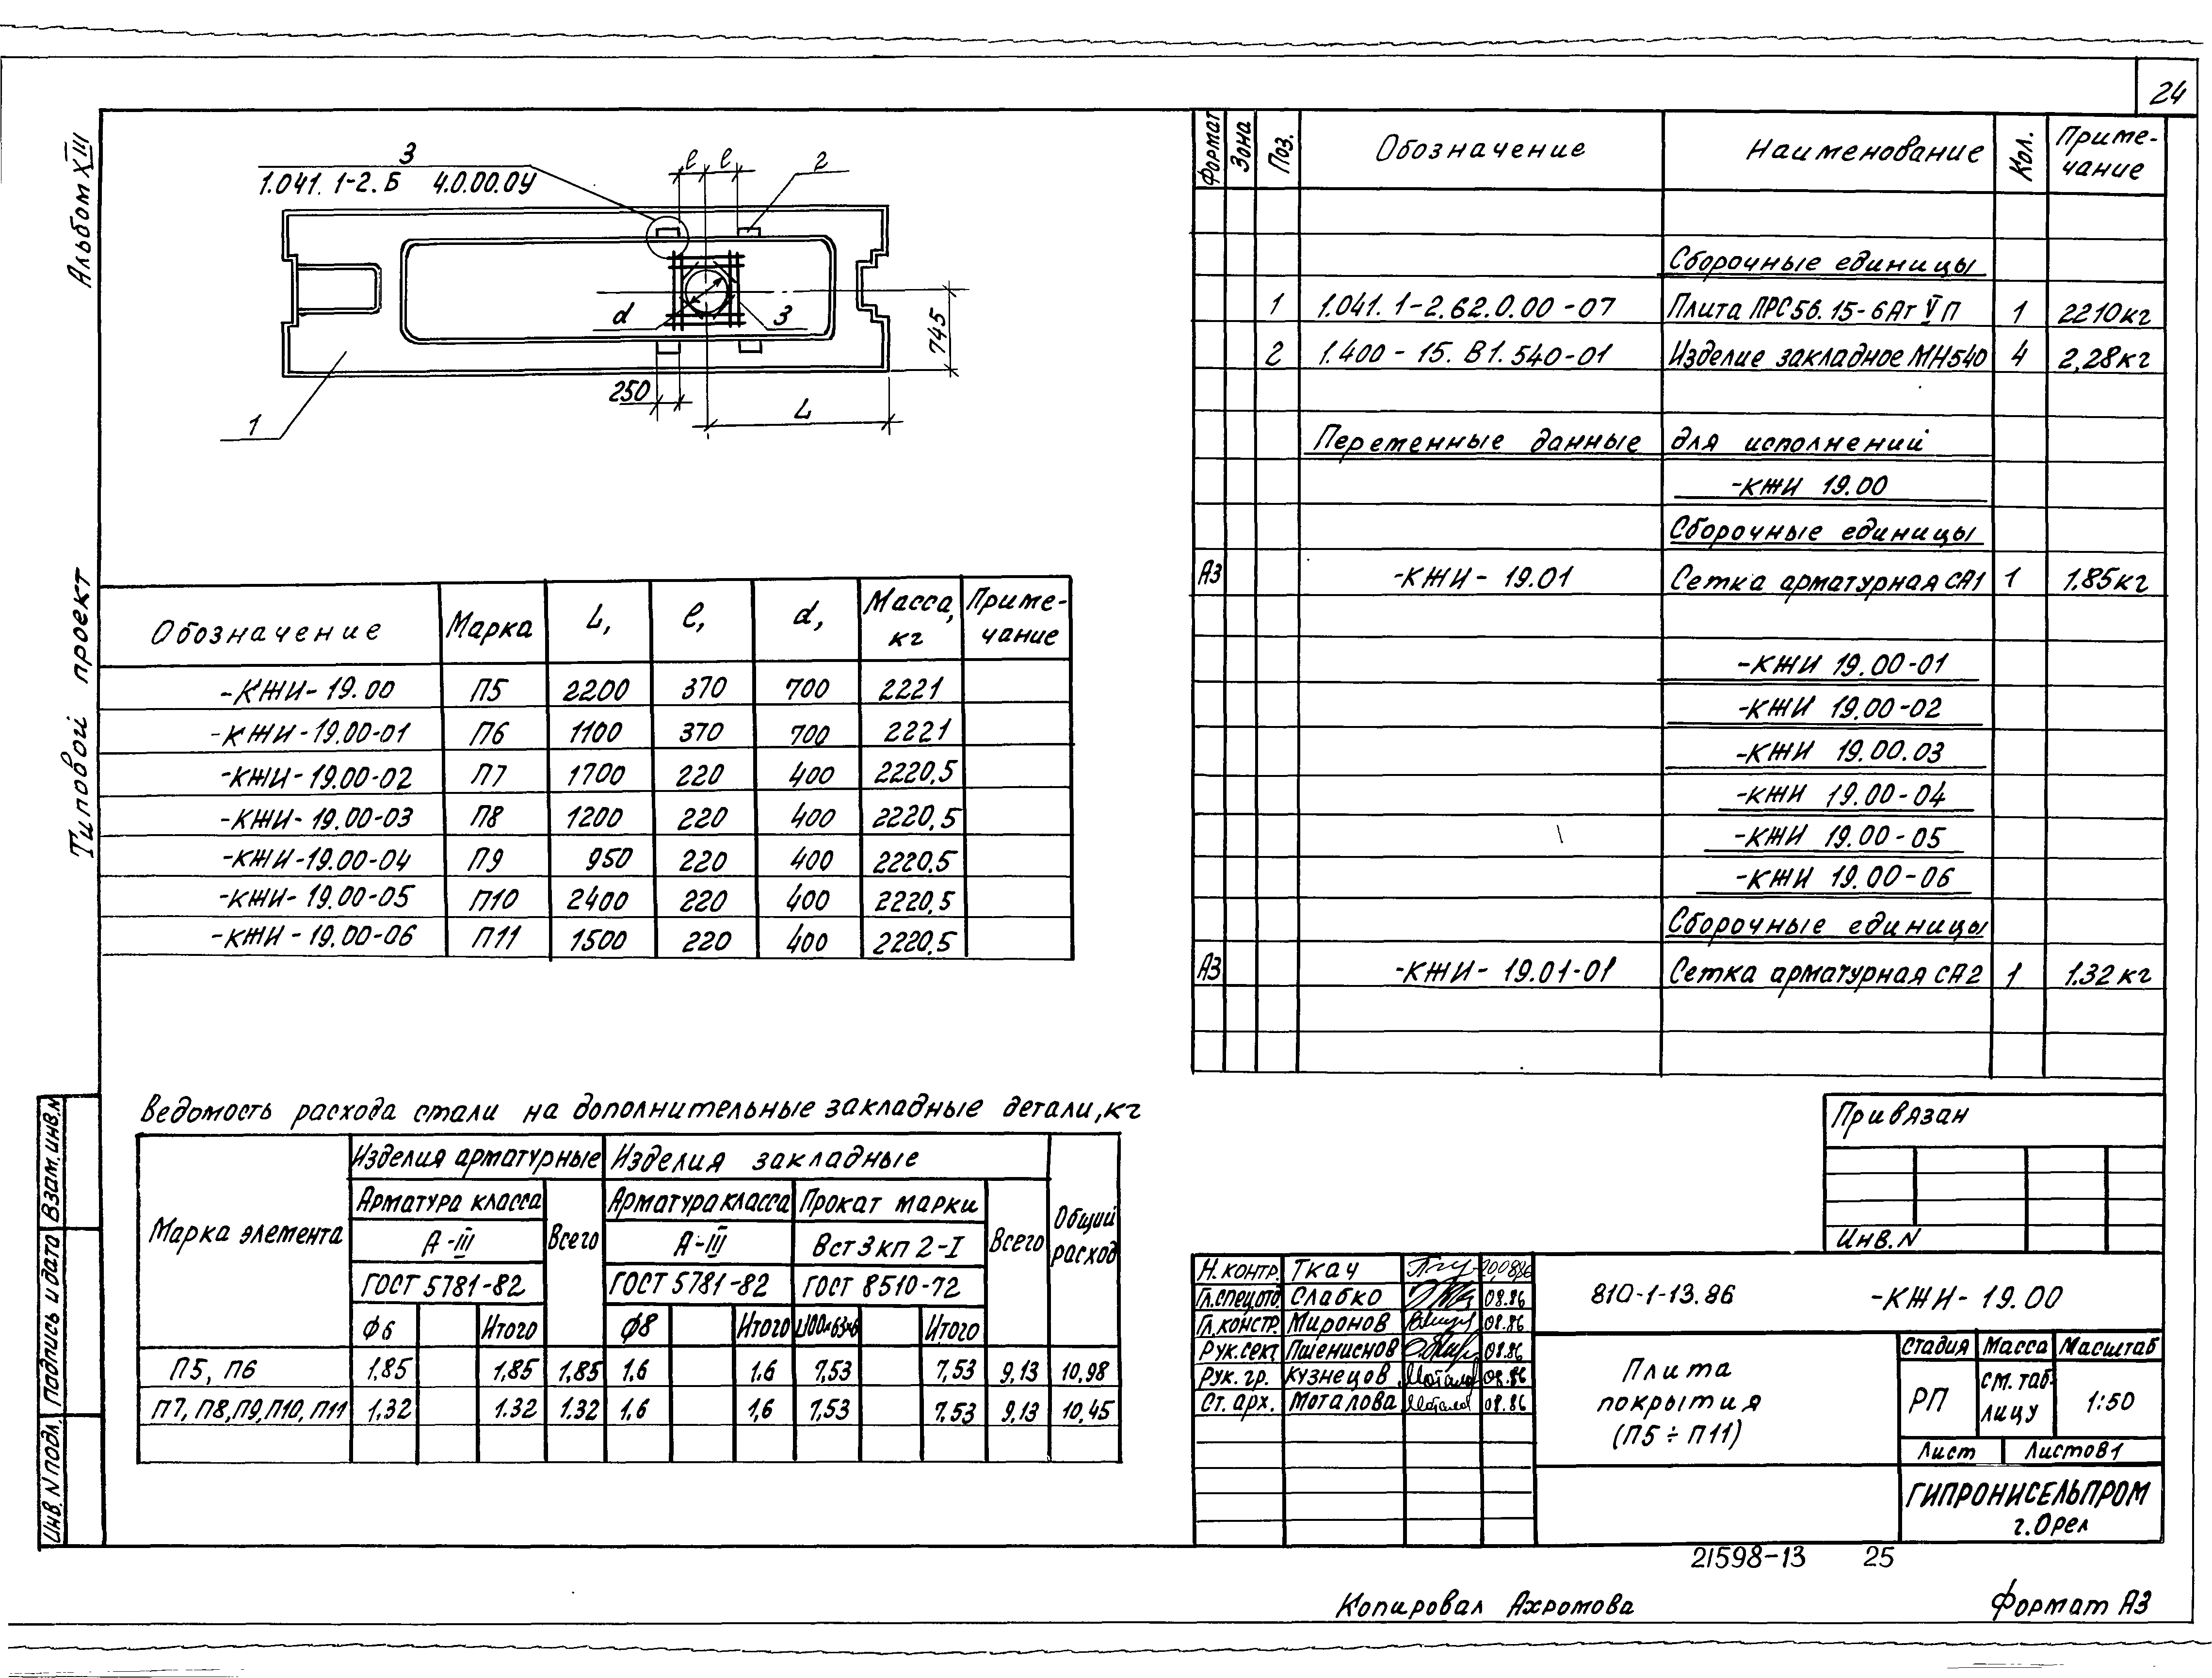 24
Альбом XIII
Типовой проект
3
1.041. 1-2. Б 4.0.00.0У
ℓ ℓ 2
d 3
745
250
L
1
Обозначение Марка L, ℓ, d, Масса, кг Приме-чание
-КЖИ-19.00 П5 2200 370 700 2221
-КЖИ-19.00-01 П6 1100 370 700 2221
-КЖИ-19.00-02 П7 1700 220 400 2220,5
-КЖИ-19.00-03 П8 1200 220 400 2220,5
-КЖИ-19.00-04 П9 950 220 400 2220,5
-КЖИ-19.00-05 П10 2400 220 400 2220,5
-КЖИ-19.00-06 П11 1500 220 400 2220,5
Ведомость расхода стали на дополнительные закладные детали, кг
Марка элемента Изделия арматурные Изделия закладные Общий расход
Арматура класса Всего Арматура класса Прокат марки Всего
А-III А-III Вст3кп2-I
ГОСТ 5781-82 ГОСТ 5781-82 ГОСТ 8510-72
ф6 Итого ф8 Итого L100×63×6 Итого
П5, П6 1,85 1,85 1,85 1,6 1,6 7,53 7,53 9,13 10,98
П7, П8, П9, П10, П11 1,32 1.32 1.32 1,6 1,6 7,53 7.53 9,13 10,45
Формат Зона Поз. Обозначение Наименование Кол. Приме-чание
Сборочные единицы
1 1.041. 1-2.62.0.00-07 Плита ПРС56.15-6Ат V П 1 2210кг
2 1.400-15. В1.540-01 Изделие закладное МН540 4 2,28кг
Переменные данные для исполнений
-КЖИ 19.00
Сборочные единицы
А3 -КЖИ-19.01 Сетка арматурная СА1 1 1.85кг
-КЖИ 19.00-01
-КЖИ 19.00-02
-КЖИ 19.00.03
-КЖИ 19.00-04
-КЖИ 19.00-05
-КЖИ 19.00-06
Сборочные единицы
А3 -КЖИ-19.01-01 Сетка арматурная СА2 1 1.32кг
Привязан
Инв. N
Н. контр. Ткач
Гл.спец.отд. Слабко 08.86
Гл. констр. Миронов 08.86
Рук. сект Пшениснов 08.86
Рук. гр. Кузнецов 08.86
Ст. арх. Моталова 08.86
810-1-13.86 -КЖИ-19.00
Плита
покрытия
(П5 ÷ П11)
Стадия Масса Масштаб
РП см. таб-лицу 1:50
Лист Листов 1
ГИПРОНИСЕЛЬПРОМ
г. Орел
Взам. инв. N
Подпись и дата
Инв. N подл.
21598-13 25
Копировал Ахромова
Формат А3